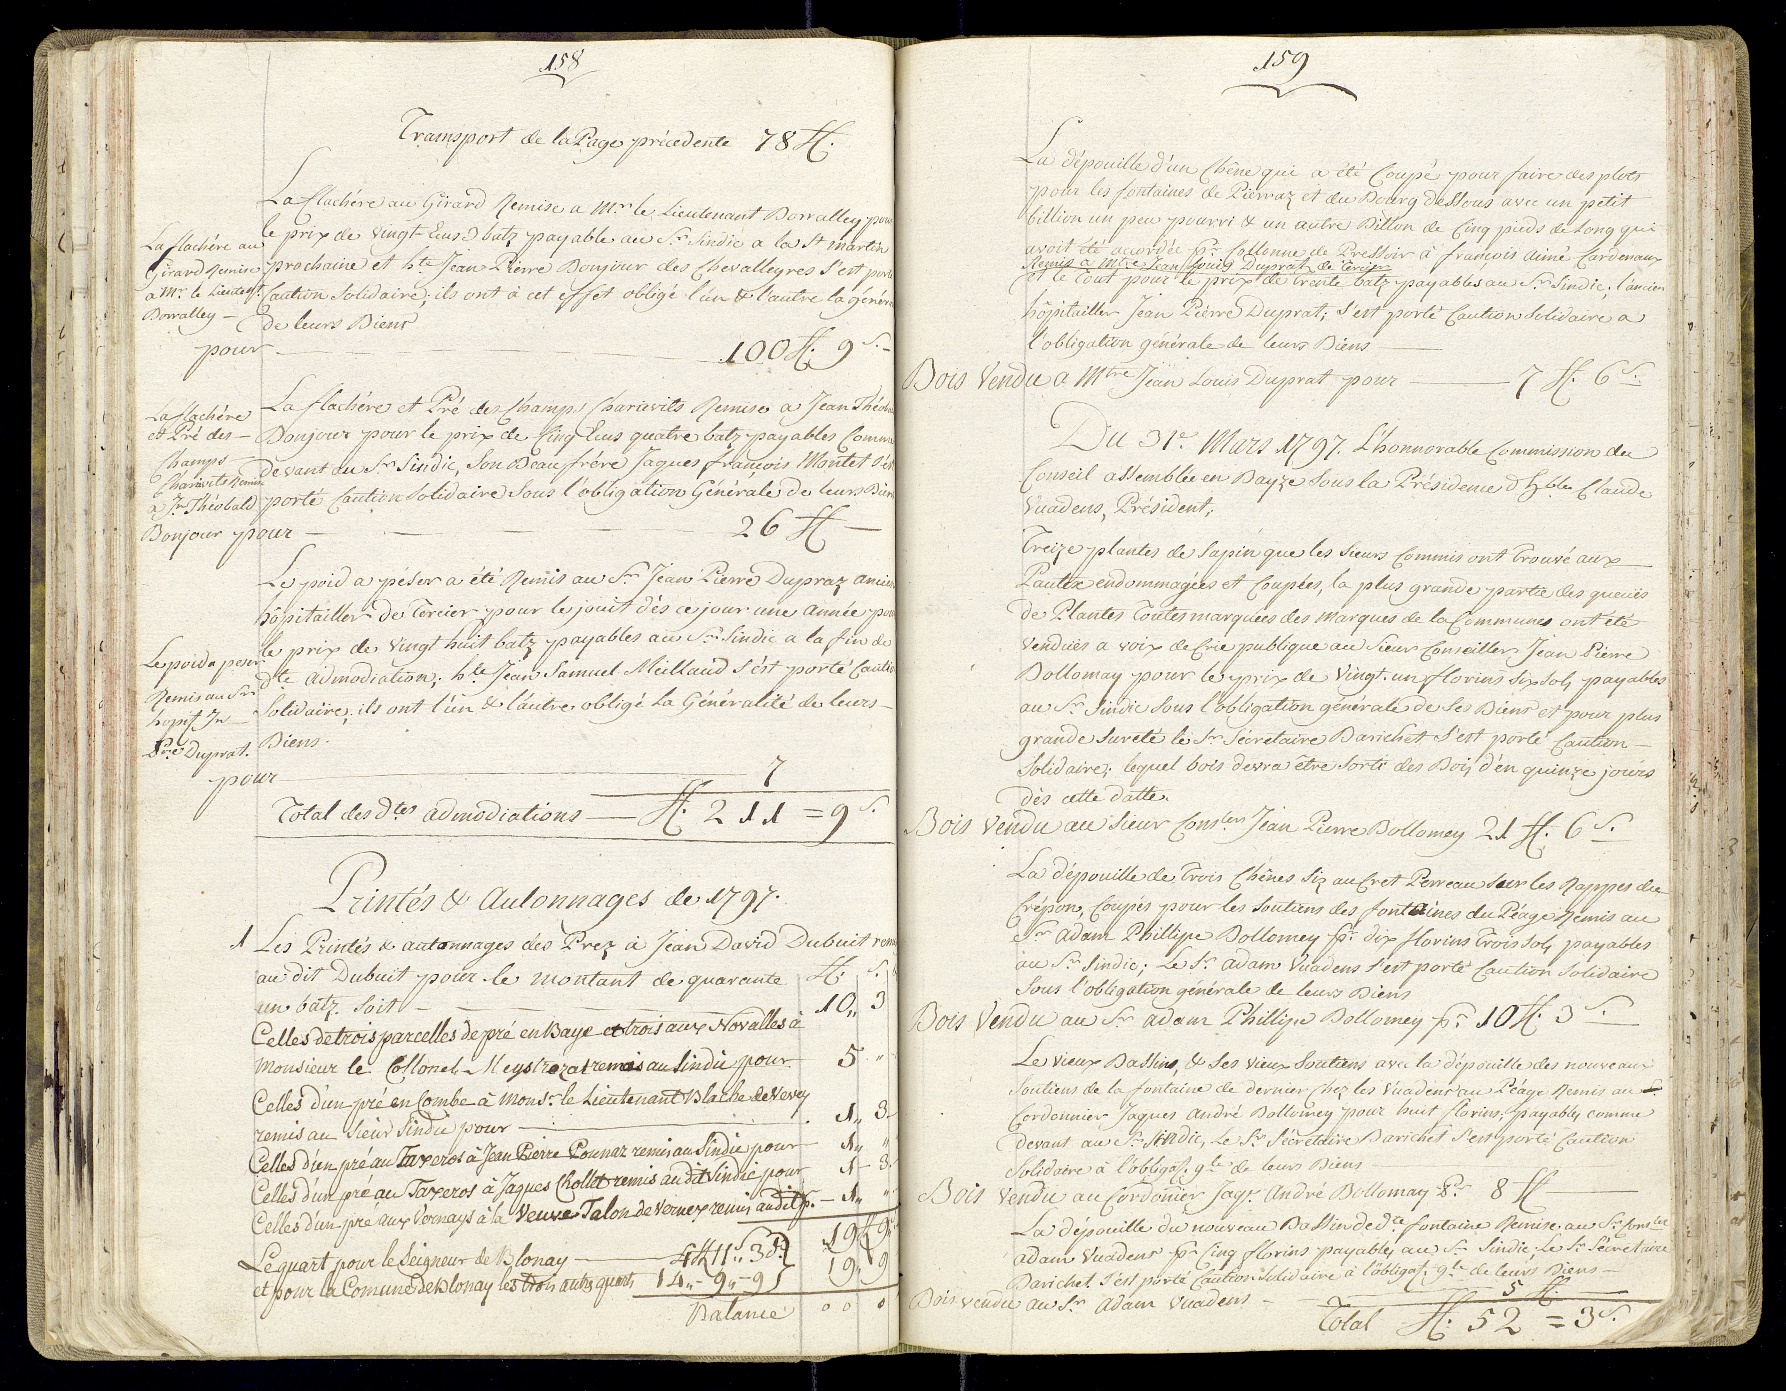 158
Transport de la Page précedente 78 ff.
La flachére au Girard Remise a Mr. le Lieutenant Dorvalley pour
le prix de vingt Ecus 3 batz payable au Sr. Sindic a la St martin
prochaine et hble Jean Pierre Bonjour des Chevalleyres s'est porté
Caution Solidaire; ils ont à cet effet obligé l'un & l'autre la généra
de leurs Biens
La flachére au
Girard Remise
a Mr. le Lieutent.
Dorvalley —
pour — 100 ff. 9 s. —
La flachére et Pré des Champs Charievits Remise a Jean Théob
Bonjour pour le prix de Cinq Ecus quatre batz payables Comme
devant au Sr. Sindic, Son Beau frére Jaques françois Montet s'est
porté Caution Solidaire Sous l'obligation Générale de leurs Biens
La flachére
et Pré des —
Champs —
Charievits Remise
a Jn. Théobald
Bonjour pour — 26 ff —
Le poid a péser a été Remis au Sr. Jean Pierre Dupraz ancien
hôpitailler de Tercier pour le jouit dés ce jour une année pour
le prix de vingt huit batz payables au Sr. Sindic a la fin de
dte admodiation; hble Jean Samuel Meillaud s'ést porté Caution
Solidaire; ils ont l'un & l'autre obligé La Généralité de leurs —
Biens.
Le poid a peser
Remis au Sr.
hopit Jn —
Pre Duprat.
pour — 7
Total des dtes admodiations — ff. 211 = 9 s.
Printés & Autonnages de 1797.
1 Les Printés & autonnages des Prez à Jean David Dubuit remis
au dit Dubuit pour le montant de quarante ff. s.
un batz. Soit — 10,, 3
Celles de trois parcelles de pré en Baye et trois aux Novalles à
Monsieur le Collonel Meystrezat remis au Sindic pour 5 ,,
Celles d'un pré en Combe à Monsr. le Lieutenant Blache de Vevey
remis au Sieur Sindic pour — 1,, 3
Celles d'un pré au Taxeros à Jean Pierre Pounaz remis au Sindic pour 1,, ,,
Celles d'un pré au Taxeros à Jaques Chollet remis au dit Sindic pour 1 – 3
Celles d'un pré aux Vernays à la Veuve Talon de Vernex remis au dit p. — 1,, ,,
19 ff 9 s
Le quart pour le Seigneur de Blonay — 4 ff 11 s.. 3 d.
et pour la Comune de Blonay les trois autres quarts 14,, – 9,, – 9 19,, 9
Balance 00 0
159
La dépouille d'un Chêne qui a été Coupé pour faire des plots
pour les fontaines de Pierraz et du Bourg dessous avec un petit
billion un peu pourri & un autre Billon de Cinq pieds de Long qui
avoit été accordée pr. Collonne de Pressoir à françois aimé Cardenaux
Remis a Mtre Jean Louis Duprat de Tercier
et le tout pour le prix de trente batz payables au Sr. Sindic; l'ancien
hôpitailler Jean Pierre Duprat; s'est porté Caution Solidaire a
l'obligation générale de leurs Biens —
Bois Vendu a Mtre Jean Louis Duprat pour — 7 ff. 6 s.
Du 31e. Mars 1797. L'honnorable Commission du
Conseil assemblée en Bayze sous la Présidence d'hble Claude
Vuadens, Président;
Treize plantes de Sapin que les Sieurs Commis ont Trouvé aux —
Pautex endommagées et Coupées, la plus grande partie des queues
de Plantes toutes marquées des marques de la Communes ont été
Vendues a voix de Crie publique au Sieur Conseiller Jean Pierre
Dollomay pour le prix de Vingt-un florins six sols payables
au Sr. Sindic sous l'obligation générale de ses Biens et pour plus
grande sureté le Sr. Sécretaire Barichet s'est porté Caution —
Solidaire; lequel bois devra être Sorti des Bois d'en quinze jours
dès cette datte.
Bois Vendu au Sieur Conslers Jean Pierre Dollomey 21 ff. 6 s.
La dépouille de Trois Chênes Siz au Cret Perreau Sur les Rappes du
Crépon, Coupés pour les Soutiens des fontaines du Péage Remis au
Sr. adam Phillipe Dollomey pr. dix florins Trois Sols payables
au Sr. Sindic; Le Sr. adam Vuadens s'est porté Caution Solidaire
Sous l'obligation générale de leurs Biens
Bois Vendu au Sr. adam Phillipe Dollomey pr. 10 ff. 3 s.
Le vieux Bassins, & ses vieux Soutiens avec la dépouille des nouveaux
Soutiens de la fontaine de dernier Chez les Vuadens au Péage Remis au
Cordonnier Jaques André Dollomey pour huit florins; payables comme
devant au Sr. Sindic, Le Sr. Sécretaire Barichet s'est porté Caution
Solidaire à l'obligat. gle de leurs Biens —
Bois Vendu au Cordonnier Jaqs. André Dollomay pr. 8 ff —
La dépouille du nouveau Bassin de dte fontaine Remise au Sr. Conslr
adam Vuadens pr. Cinq florins payables au Sr. Sindic, Le Sr. Sécretaire
Barichet s'est porté Caution Solidaire à l'obligat. gle de leurs Biens —
Bois vendu au Sr. Adam Vuadens — 5 ff.
Total ff. 52 = 3 s.